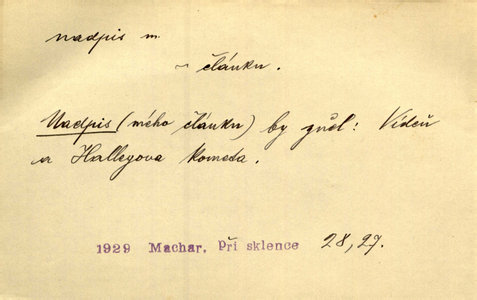 nadpis m.
~ článku.
Nadpis (mého článku) by zněl: Vídeň
a Halleyova kometa.
1929 Machar, Při sklence 28, 27.